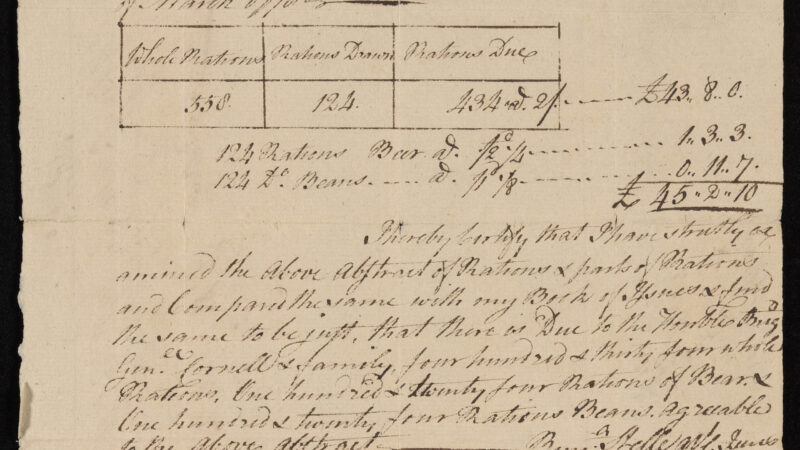 of March 1778
Whole Rations Rations Drawn Rations Due
558. 124. 434 ad. 2/. £43,, 8,, 0.
124 Rations Beer ad. 1,, 3,, 3.
124 Do. Beans. ad. 0,, 11,, 7.
£ 45,, 2,, 10
I hereby Certify that I have strictly ex
amined the Above Abstract of Rations & parts of Rations
and Compared the same with my Book of Issues & find
the same to be just, that there is Due to the Honble Brigd
Genll Cornell & family, four hundred & thirty four whole
Rations, One hundred & twenty four Rations of Bear, &
One hundred & twenty four Rations Beans. Agreable
to the Above Abstract